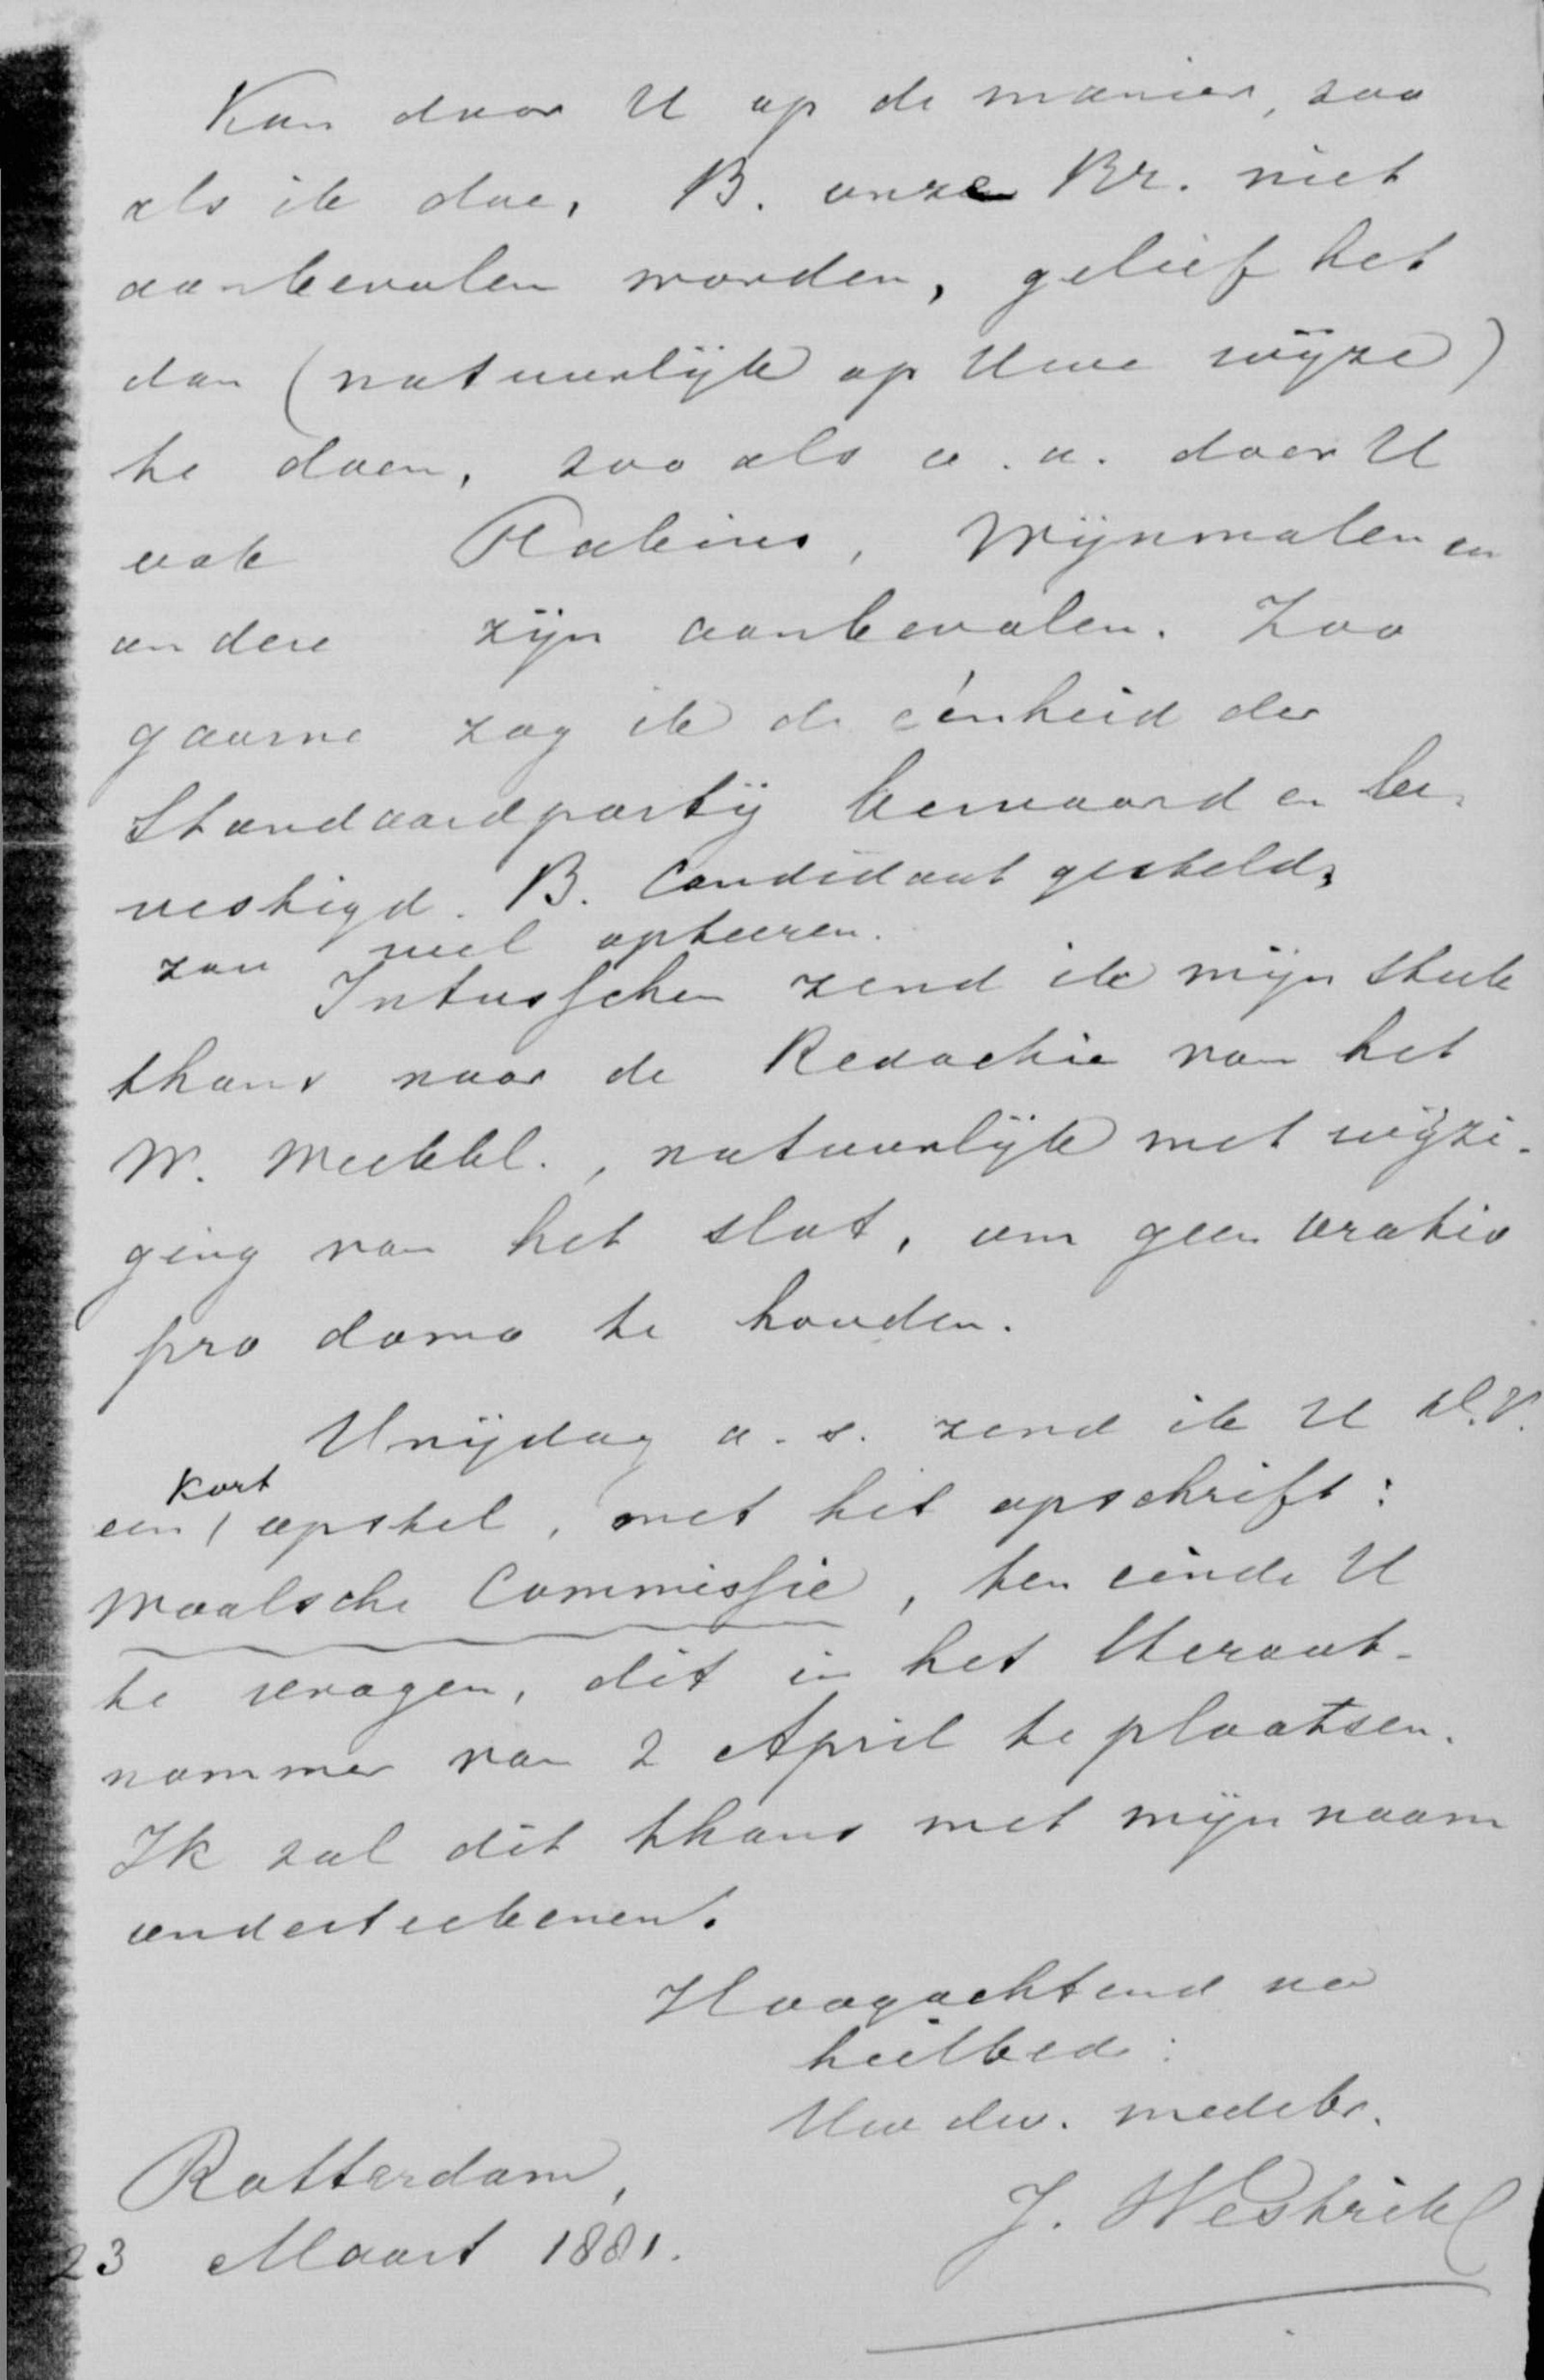 Kan door U op de manier, zoo
als ik doe, B. onze Br. niet
aanbevolen worden, gelief het
dan (natuurlijk op Uwe wijze)
te doen, zoo als o.a. door U
ook Rabius, Wijnmalen en
andere zijn aanbevolen. Zoo
gaarne zag ik de éénheid der
Standaardpartij bewaard en be-
vestigd. B. Candidaat gesteld,
zou wel opteeren.
Intusschen zend ik mijn stuk
thans naar de Redactie van het
W. Weekbl., natuurlijk met wijzi-
ging van het slot, om geen oratio
pro domo te houden.
Vrijdag a.s. zend ik U D.V.
een kort opstel, met het opschrift:
Waalsche Commissie, ten einde U
te vragen, dit in het Heraut-
nommer van 2 April te plaatsen.
Ik zal dit thans met mijn naam
onderteekenen.
Hoogachtend na
heilbede:
Uw dw. medebr.
J. Westrik
Rotterdam,
23 Maart 1881.